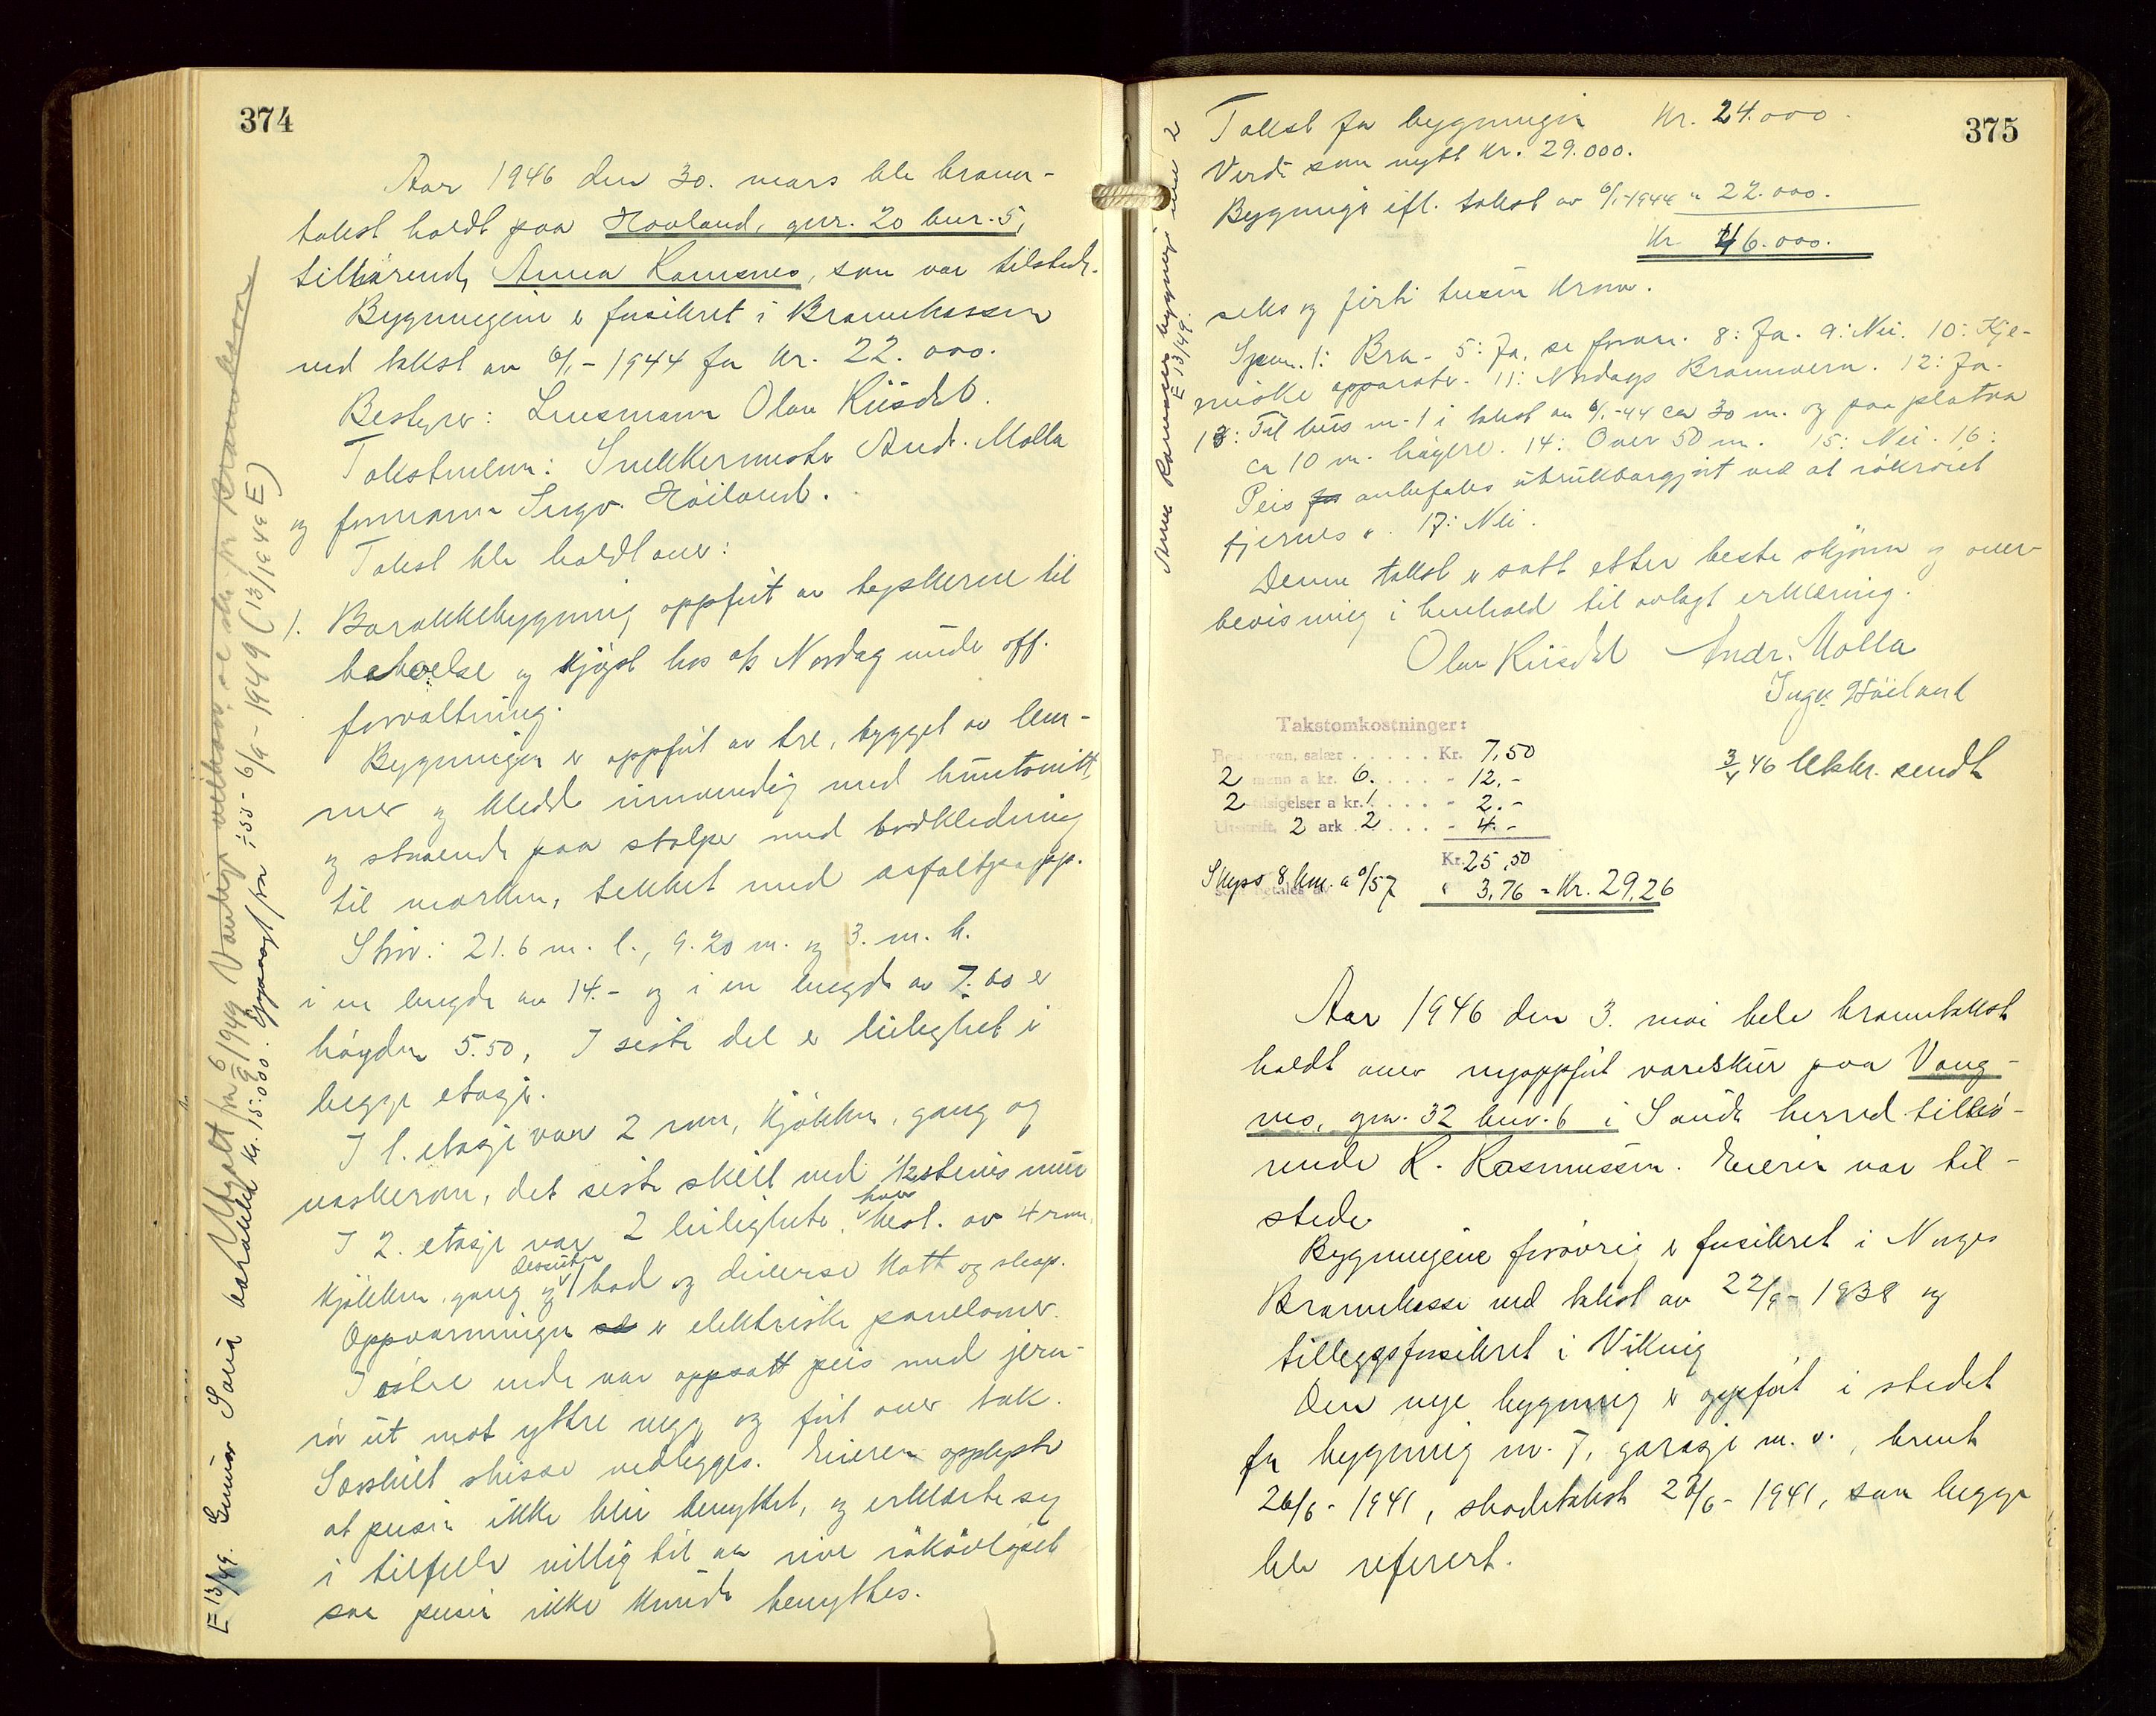 374
Aar 1946 den 30. mars ble brann-
takst holdt paa Hovland, gnr. 20 bnr. 5,
tilhörende Anna Ramsnes, som var tilstede.
Bygningene er forsikret i Brannkassen
ved takst av 6/1 - 1944 for kr. 22.000.
Bestyrer: Lensmann Olav Riisdal.
Takstmenn: Snekkermester Andr. Molla
og formann Ingv. Höiland.
Takst ble holdt over:
1. Barakkebygning oppfört av tyskerne til
beboelse og kjöpt hos a/s Nordag under off.
forvaltning.
Bygningen er oppfört av tre, bygget av lem-
mer og kledd innvendig med huntonitt,
og staaende paa stolper med bordkledning
til marken, tekket med asfaltpapp.
Störr: 21.6 m. l., 9.20 m. og 3. m. h.
i en lengde av 14.- og i en lengde av 7.60 er
höyden 5.50, I siste del er leilighet i
begge etasjer.
I 1. etasje var 2 rom, kjökken, gang og
vaskerom, det siste skilt ved 1/2 stens mur
I 2. etasje var 2 leiligheter, hver best. av 4 rom,
kjökken, gang og dessuten 1 bad og diverse kott og skap.
Oppvarmingen er elektriske panelovner.
I östre ende var oppsatt peis med jern-
rör ut mot yttre vegg og fört over tak.
Særskilt skisse vedlegges. Eieren opplyste
at peisen ikke blir benyttet, og erklærte seg
i tilfelle villig til aa rive rökavlöpet
saa peisen ikke kunde benyttes.
6/9 1949
oppsagt fra i 55 - 6/9 - 1949 (13/1949 E)
E 13/49. Gunnar barakke kr. 15.000.
375
Takst for bygningen kr. 24.000.
Verdi som nytt kr. 29.000.
Bygninger ifl. takst av 6/1-1944 " 22.000.
Kr 46.000.
seks og förti tusen kroner.
Spm. 1: Bra. 5: Ja, se foran. 8: Ja. 9: Nei. 10: Kje-
miske apparater. 11: Nordags Brannvern. 12: Ja.
13: Til hus nr. 1 i takst av 6/1-44 ca 30 m. og paa platen
ca 10 m. höyere. 14: Over 50 m. 15: Nei. 16:
Peis anbefales ubrukbargjort ved at rökröret
fjernes. 17: Nei.
Denne takst er satt etter beste skjönn og over-
bevisning i henhold til avlagt erklæring.
Olav Riisdal Andr. Molla
Ingv. Höiland
Takstomkostninger:
Bestyreren, salær . . . . . Kr. 7,50
2 menn a kr. 6. . . . . - 12,-
2 tilsigelser a kr. 1 . . . . - 2.-
Utskrift, 2 ark 2 . . . - 4.-
Kr. 25,50
Skyss 8 km. a 0/57 " 3,76 = Kr. 29,26
3/4 46 Utskr. sendt
E 13/49.
Aar 1946 den 3. mai ble branntakst
holdt over nyoppfört vareskur paa Vang-
nes, gnr. 32 bnr. 6 i Sauda herred tilhö-
rende K. Rasmussen. Eieren var til-
stede.
Bygningene forövrig er forsikret i Norges
Brannkasse ved takst av 22/9 - 1938 og
tilleggsforsikret i Viking
Den nye bygning er oppfört i stedet
for bygning nr. 7, garasje m. v., brent
26/6 - 1941, skadetakst 28/6 - 1941, som begge
ble referert.